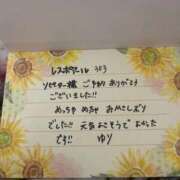 レスポワール 303
リピーター様 ご予約ありがとう
ございました!!
めっちゃ めちゃ おひさしぶり
でした!! 元気よさそうで よかった
です!! ゆり